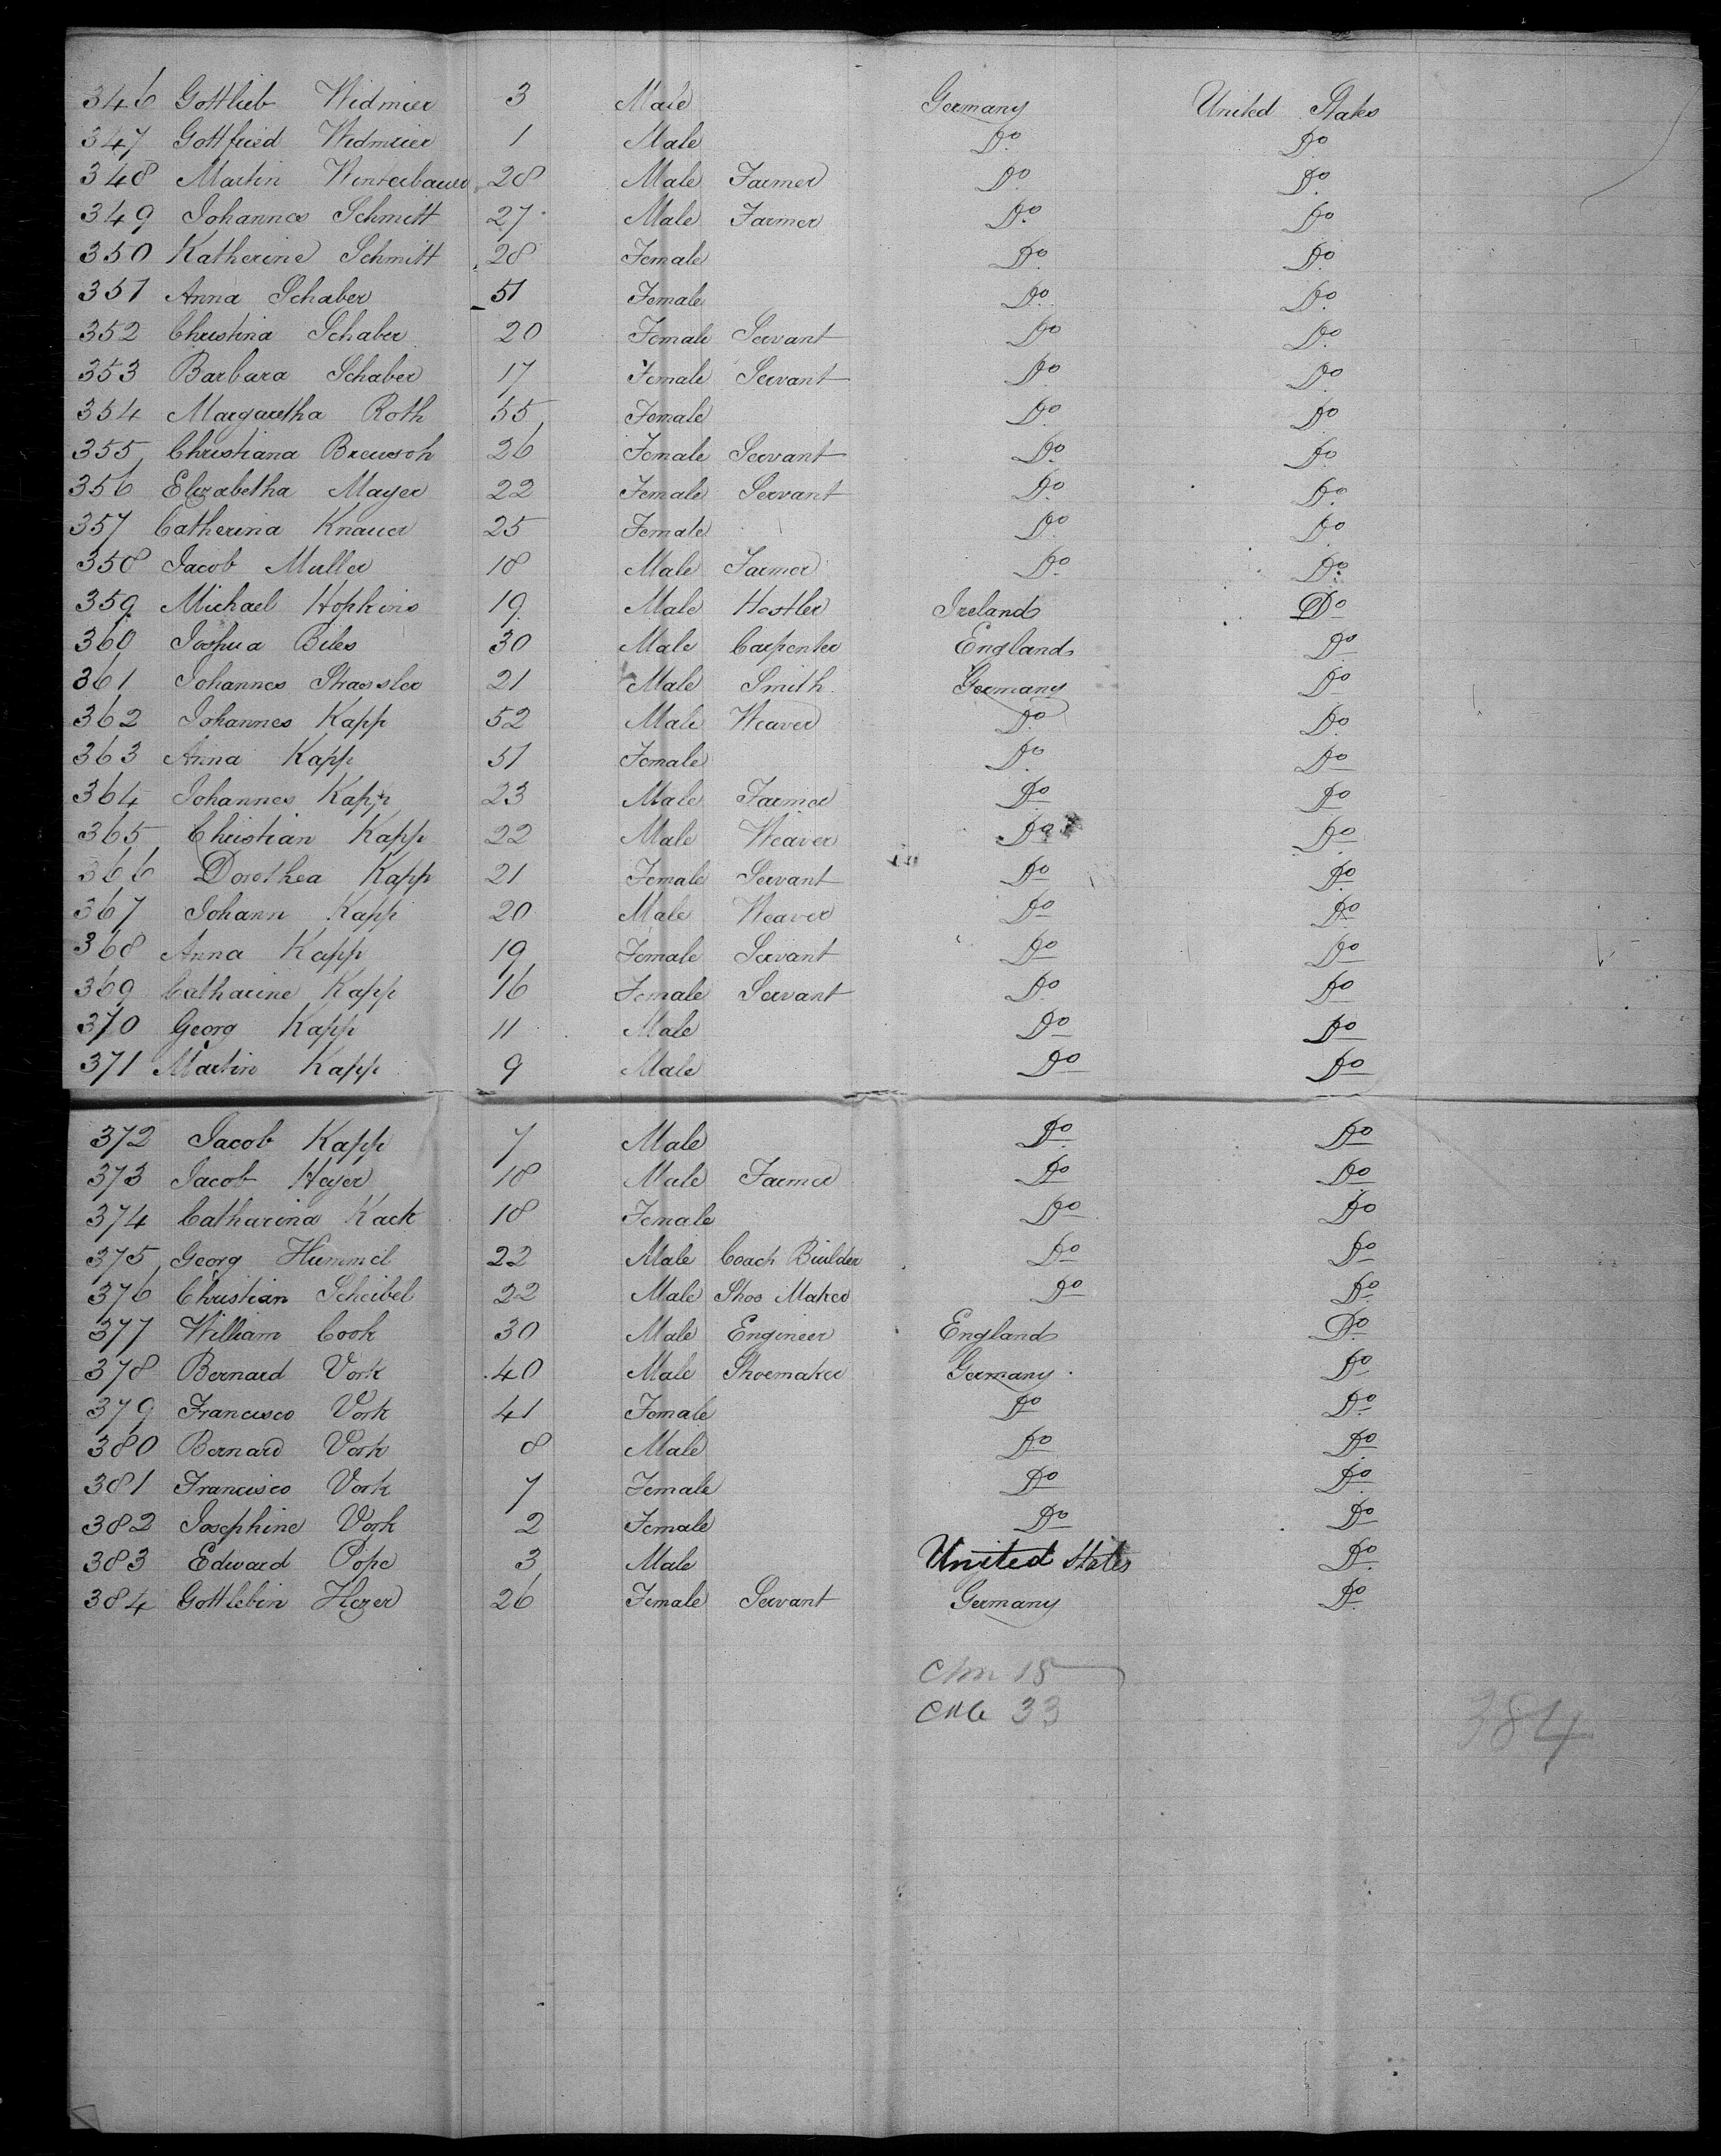 346 Gottlieb Widmier 3 Male Germany United States
347 Gottfried Widmier 1 Male Do Do
348 Martin Winterbauer 28 Male Farmer Do Do
349 Johannes Schmitt 27 Male Farmer Do Do
350 Katherine Schmitt 28 Female Do Do
351 Anna Schaber 51 Female Do Do
352 Christina Schaber 20 Female Servant Do Do
353 Barbara Schaber 17 Female Servant Do Do
354 Margaretha Roth 55 Female Do Do
355 Christiana Breusch 26 Female Servant Do Do
356 Elizabetha Mayer 22 Female Servant Do Do
357 Catherina Knauer 25 Female Do Do
358 Jacob Muller 18 Male Farmer Do Do
359 Michael Hopkins 19 Male Hostler Ireland Do
360 Joshua Biles 30 Male Carpenter England Do
361 Johannes Strassler 21 Male Smith Germany Do
362 Johannes Kapp 52 Male Weaver Do Do
363 Anna Kapp 51 Female Do Do
364 Johannes Kapp 23 Male Farmer Do Do
365 Christian Kapp 22 Male Weaver Do Do
366 Dorothea Kapp 21 Female Servant Do Do
367 Johann Kapp 20 Male Weaver Do Do
368 Anna Kapp 19 Female Servant Do Do
369 Catharine Kapp 16 Female Servant Do Do
370 Georg Kapp 11 Male Do Do
371 Martin Kapp 9 Male Do Do
372 Jacob Kapp 7 Male Do Do
373 Jacob Hayer 18 Male Farmer Do Do
374 Catharina Kack 18 Female Do Do
375 Georg Hummel 22 Male Coach Builder Do Do
376 Christian Scheibel 22 Male Shoe Maker Do Do
377 William Cook 30 Male Engineer England Do
378 Bernard Vork 40 Male Shoemaker Germany Do
379 Francisco Vork 41 Female Do Do
380 Bernard Vork 8 Male Do Do
381 Francisco Vork 7 Female Do Do
382 Josephine Vork 2 Female Do Do
383 Edward Pope 3 Male United States Do
384 Gottlebin Hezer 26 Female Servant Germany Do
15
33 384